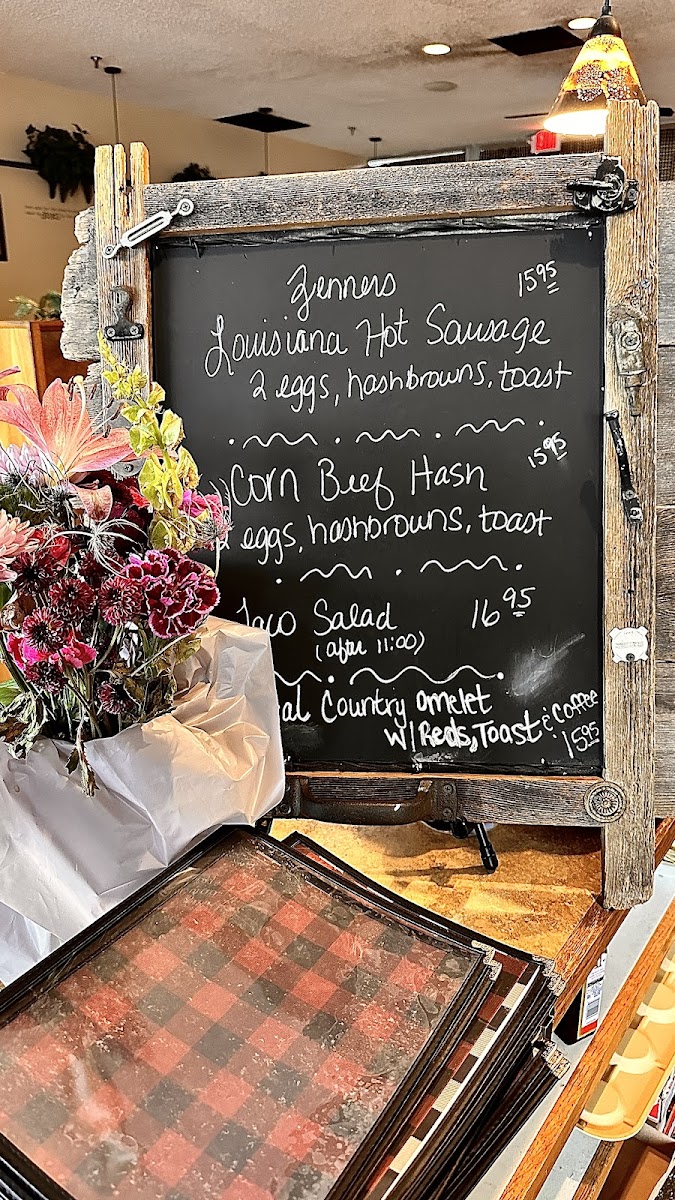 Zenners 15 95
Louisiana Hot Sausage
2 eggs, hashbrowns, toast
Corn Beef Hash 15 95
2 eggs, hashbrowns, toast
Taco Salad 16 95
(after 11:00)
al Country omelet
w/ Reds, Toast & Coffee
15 95